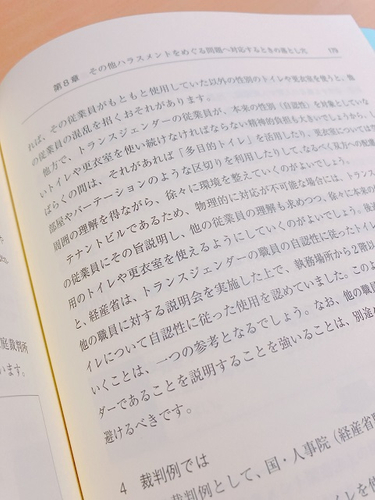 第8章 その他ハラスメントをめぐる問題へ対応するときの落とし穴 179
れば、その従業員がもともと使用していた以外の性別のトイレや更衣室を使うと、他
の従業員の混乱を招くおそれがあります。
他方で、トランスジェンダーの従業員が、本来の性別（自認性）を対象としていな
いトイレや更衣室を使い続けなければならない精神的負担も大きいでしょうから、し
ばらくの間は、それがあれば「多目的トイレ」を活用したり、更衣室については
部屋やパーテーションのような区切りを利用したりして、なるべく双方への配慮
周囲の理解を得ながら、徐々に環境を整えていくのがよいでしょう。
テナントビルであるため、物理的に対応が不可能な場合には、トランス
の従業員にその旨説明し、他の従業員の理解も求めつつ、徐々に本来の
用のトイレや更衣室を使えるようにしていくのがよいでしょう。
と、経産省は、トランスジェンダーの職員の自認性に従ったトイレ
他の職員に対する説明会を実施した上で、執務場所から2階以
イレについて自認性に従った使用を認めていました。このよ
いくことは、一つの参考となるでしょう。なお、他の職員
ダーであることを説明することを強いることは、別途
避けるべきです。
4 裁判例では
裁判例として、国・人事院（経産省
庭裁判所
います。